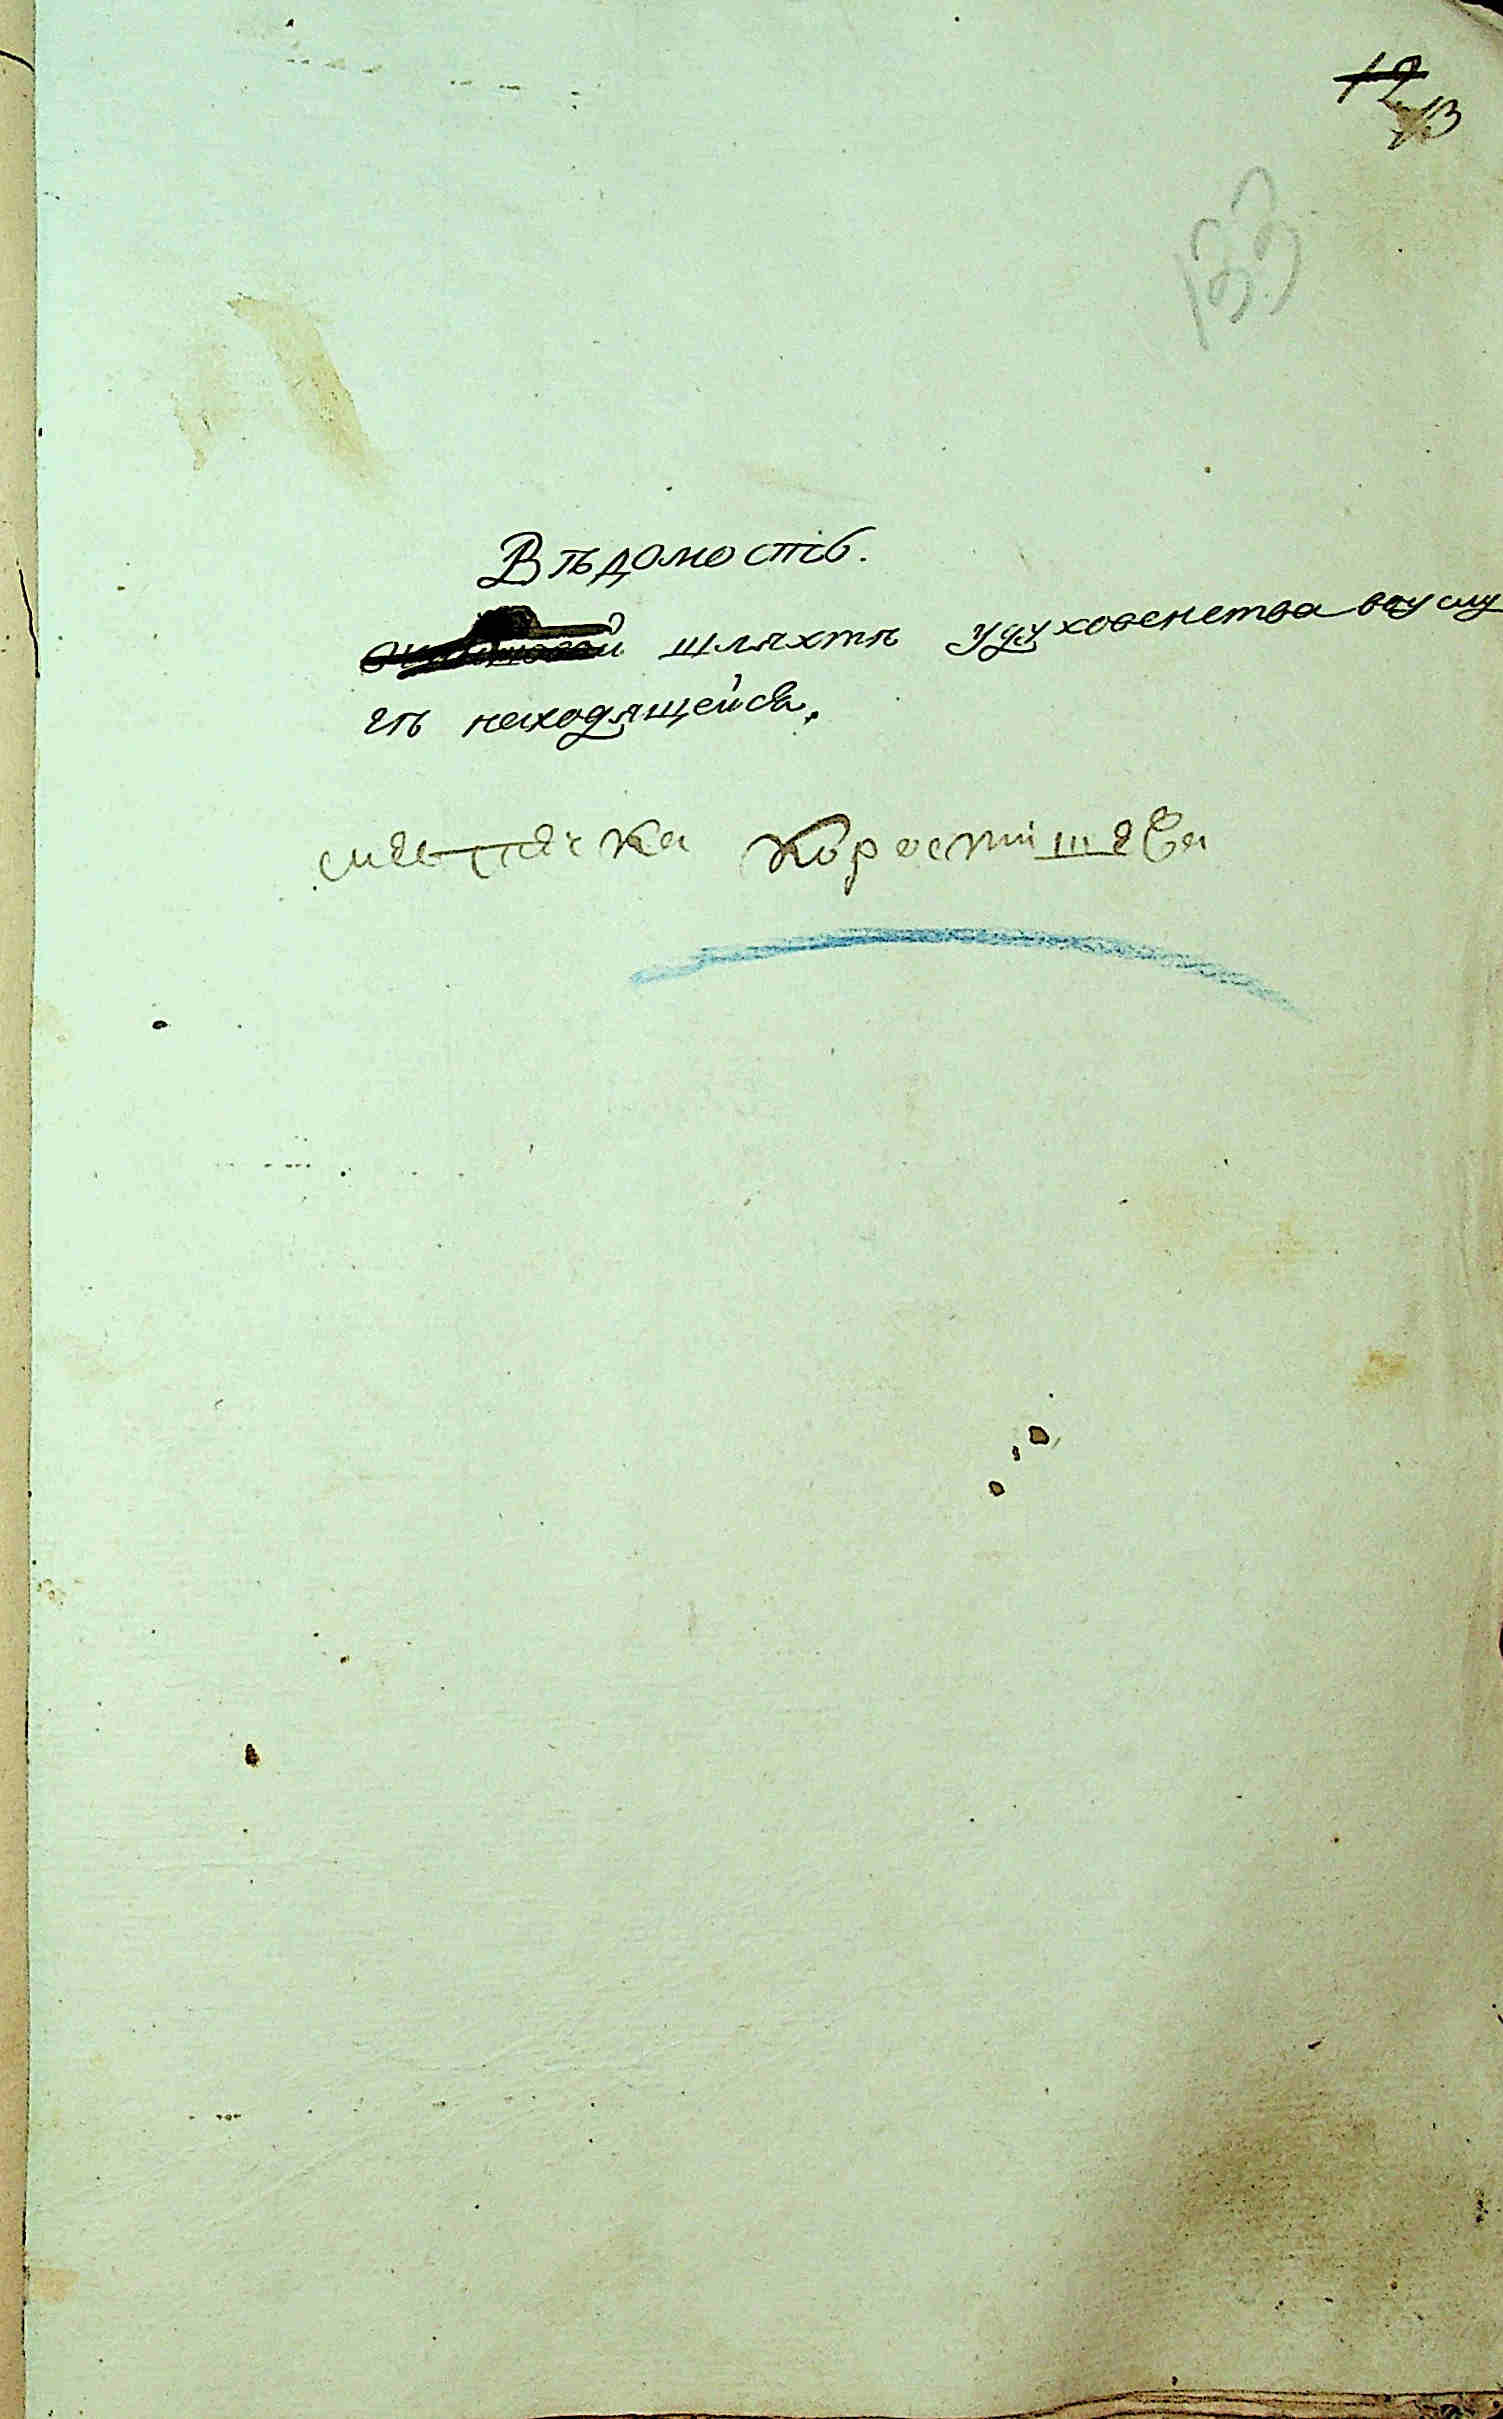 12
13
133
Вѣдомость.
шляхтѣ удуховенства воуслу
гѣ находящейся,
местечка Коростишева